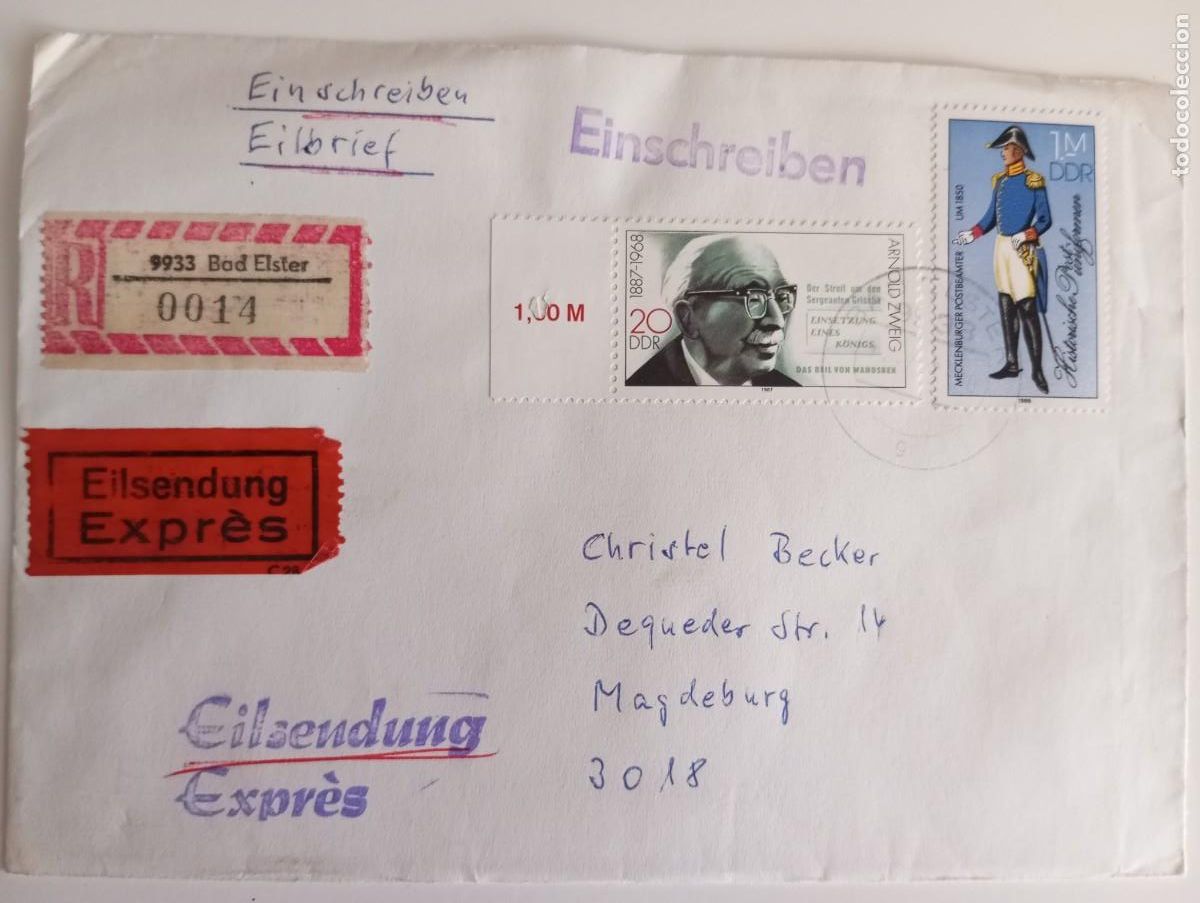 Einschreiben
Eilbrief
Einschreiben
R
9933 Bad Elster
0014
Eilsendung
Exprès
C 28
1,00 M
1887-1968
20
DDR
Der Streit um den
Sergeanten Grischa
EINSETZUNG
EINES
KÖNIGS
DAS BEIL VON WANDSBEK
ARNOLD ZWEIG
1987
1M
DDR
MECKLENBURGER POSTBEAMTER UM 1850
Historische Postuniformen
1986
Christel Becker
Dequeder Str. 14
Magdeburg
3018
Eilsendung
Exprès
todocoleccion